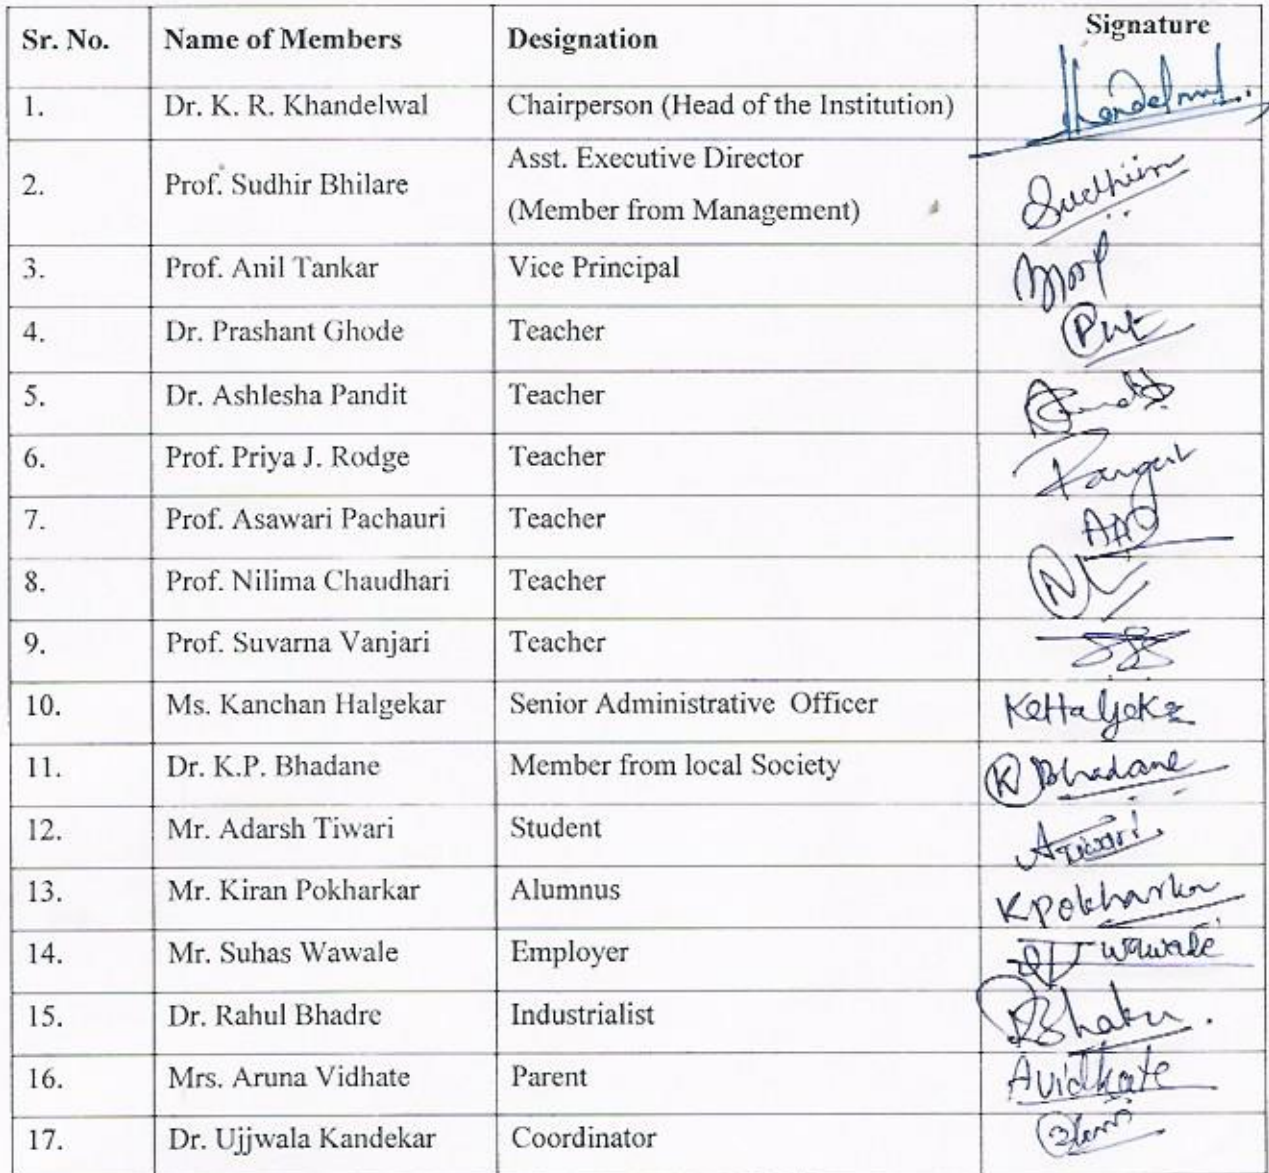 Sr. No. Name of Members Designation Signature
1. Dr. K. R. Khandelwal Chairperson (Head of the Institution)
2. Prof. Sudhir Bhilare Asst. Executive Director
(Member from Management)
3. Prof. Anil Tankar Vice Principal
4. Dr. Prashant Ghode Teacher
5. Dr. Ashlesha Pandit Teacher
6. Prof. Priya J. Rodge Teacher
7. Prof. Asawari Pachauri Teacher
8. Prof. Nilima Chaudhari Teacher
9. Prof. Suvarna Vanjari Teacher
10. Ms. Kanchan Halgekar Senior Administrative Officer
11. Dr. K.P. Bhadane Member from local Society K Bhadane
12. Mr. Adarsh Tiwari Student
13. Mr. Kiran Pokharkar Alumnus
14. Mr. Suhas Wawale Employer Wawale
15. Dr. Rahul Bhadre Industrialist
16. Mrs. Aruna Vidhate Parent Avidhate
17. Dr. Ujjwala Kandekar Coordinator